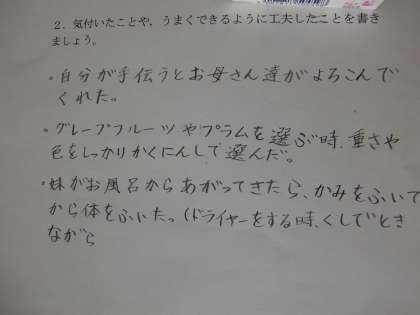 2．気付いたことや，うまくできるように工夫したことを書き
ましょう。
・自分が手伝うとお母さん達がよろこんで
くれた。
・グレープフルーツやプラムを選ぶ時、重さや
色をしっかりかくにんして選んだ。
・妹がお風呂からあがってきたら、かみをふいて
から体をふいた。(ドライヤーをする時、くしでとき
ながら